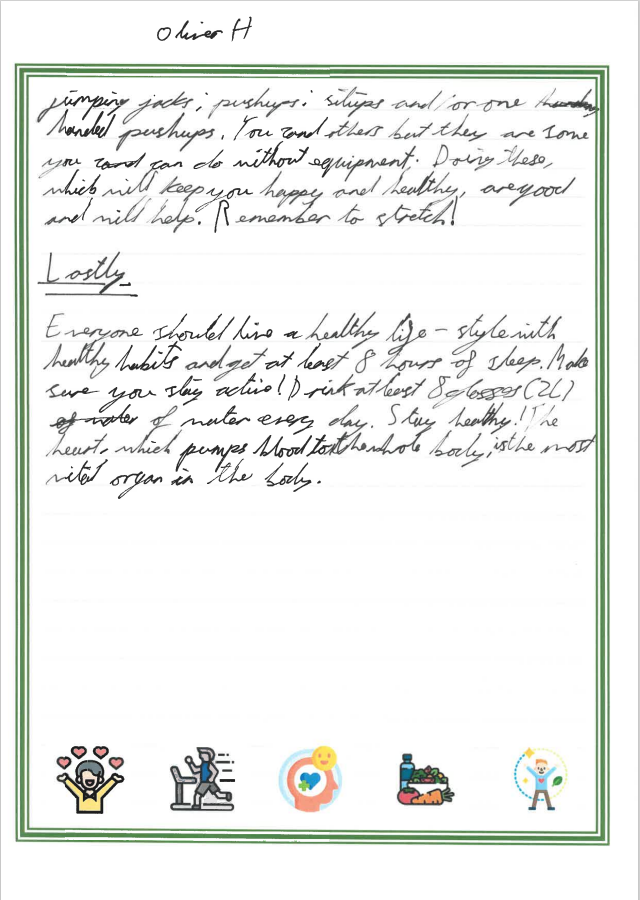 Oliver H
jumping jacks; pushups; situps and/or one
handed pushups. You and others but they are some
you can do without equipment. Doing these,
which will keep you happy and healthy, are good
and will help. Remember to stretch!
Lastly
Everyone should live a healthy life-style with
healthy habits and get at least 8 hours of sleep. Make
sure you stay active! Drink at least 8 glasses (2L)
of water of water every day. Stay healthy! The
heart, which pumps blood to the whole body, is the most
vital organ in the body.